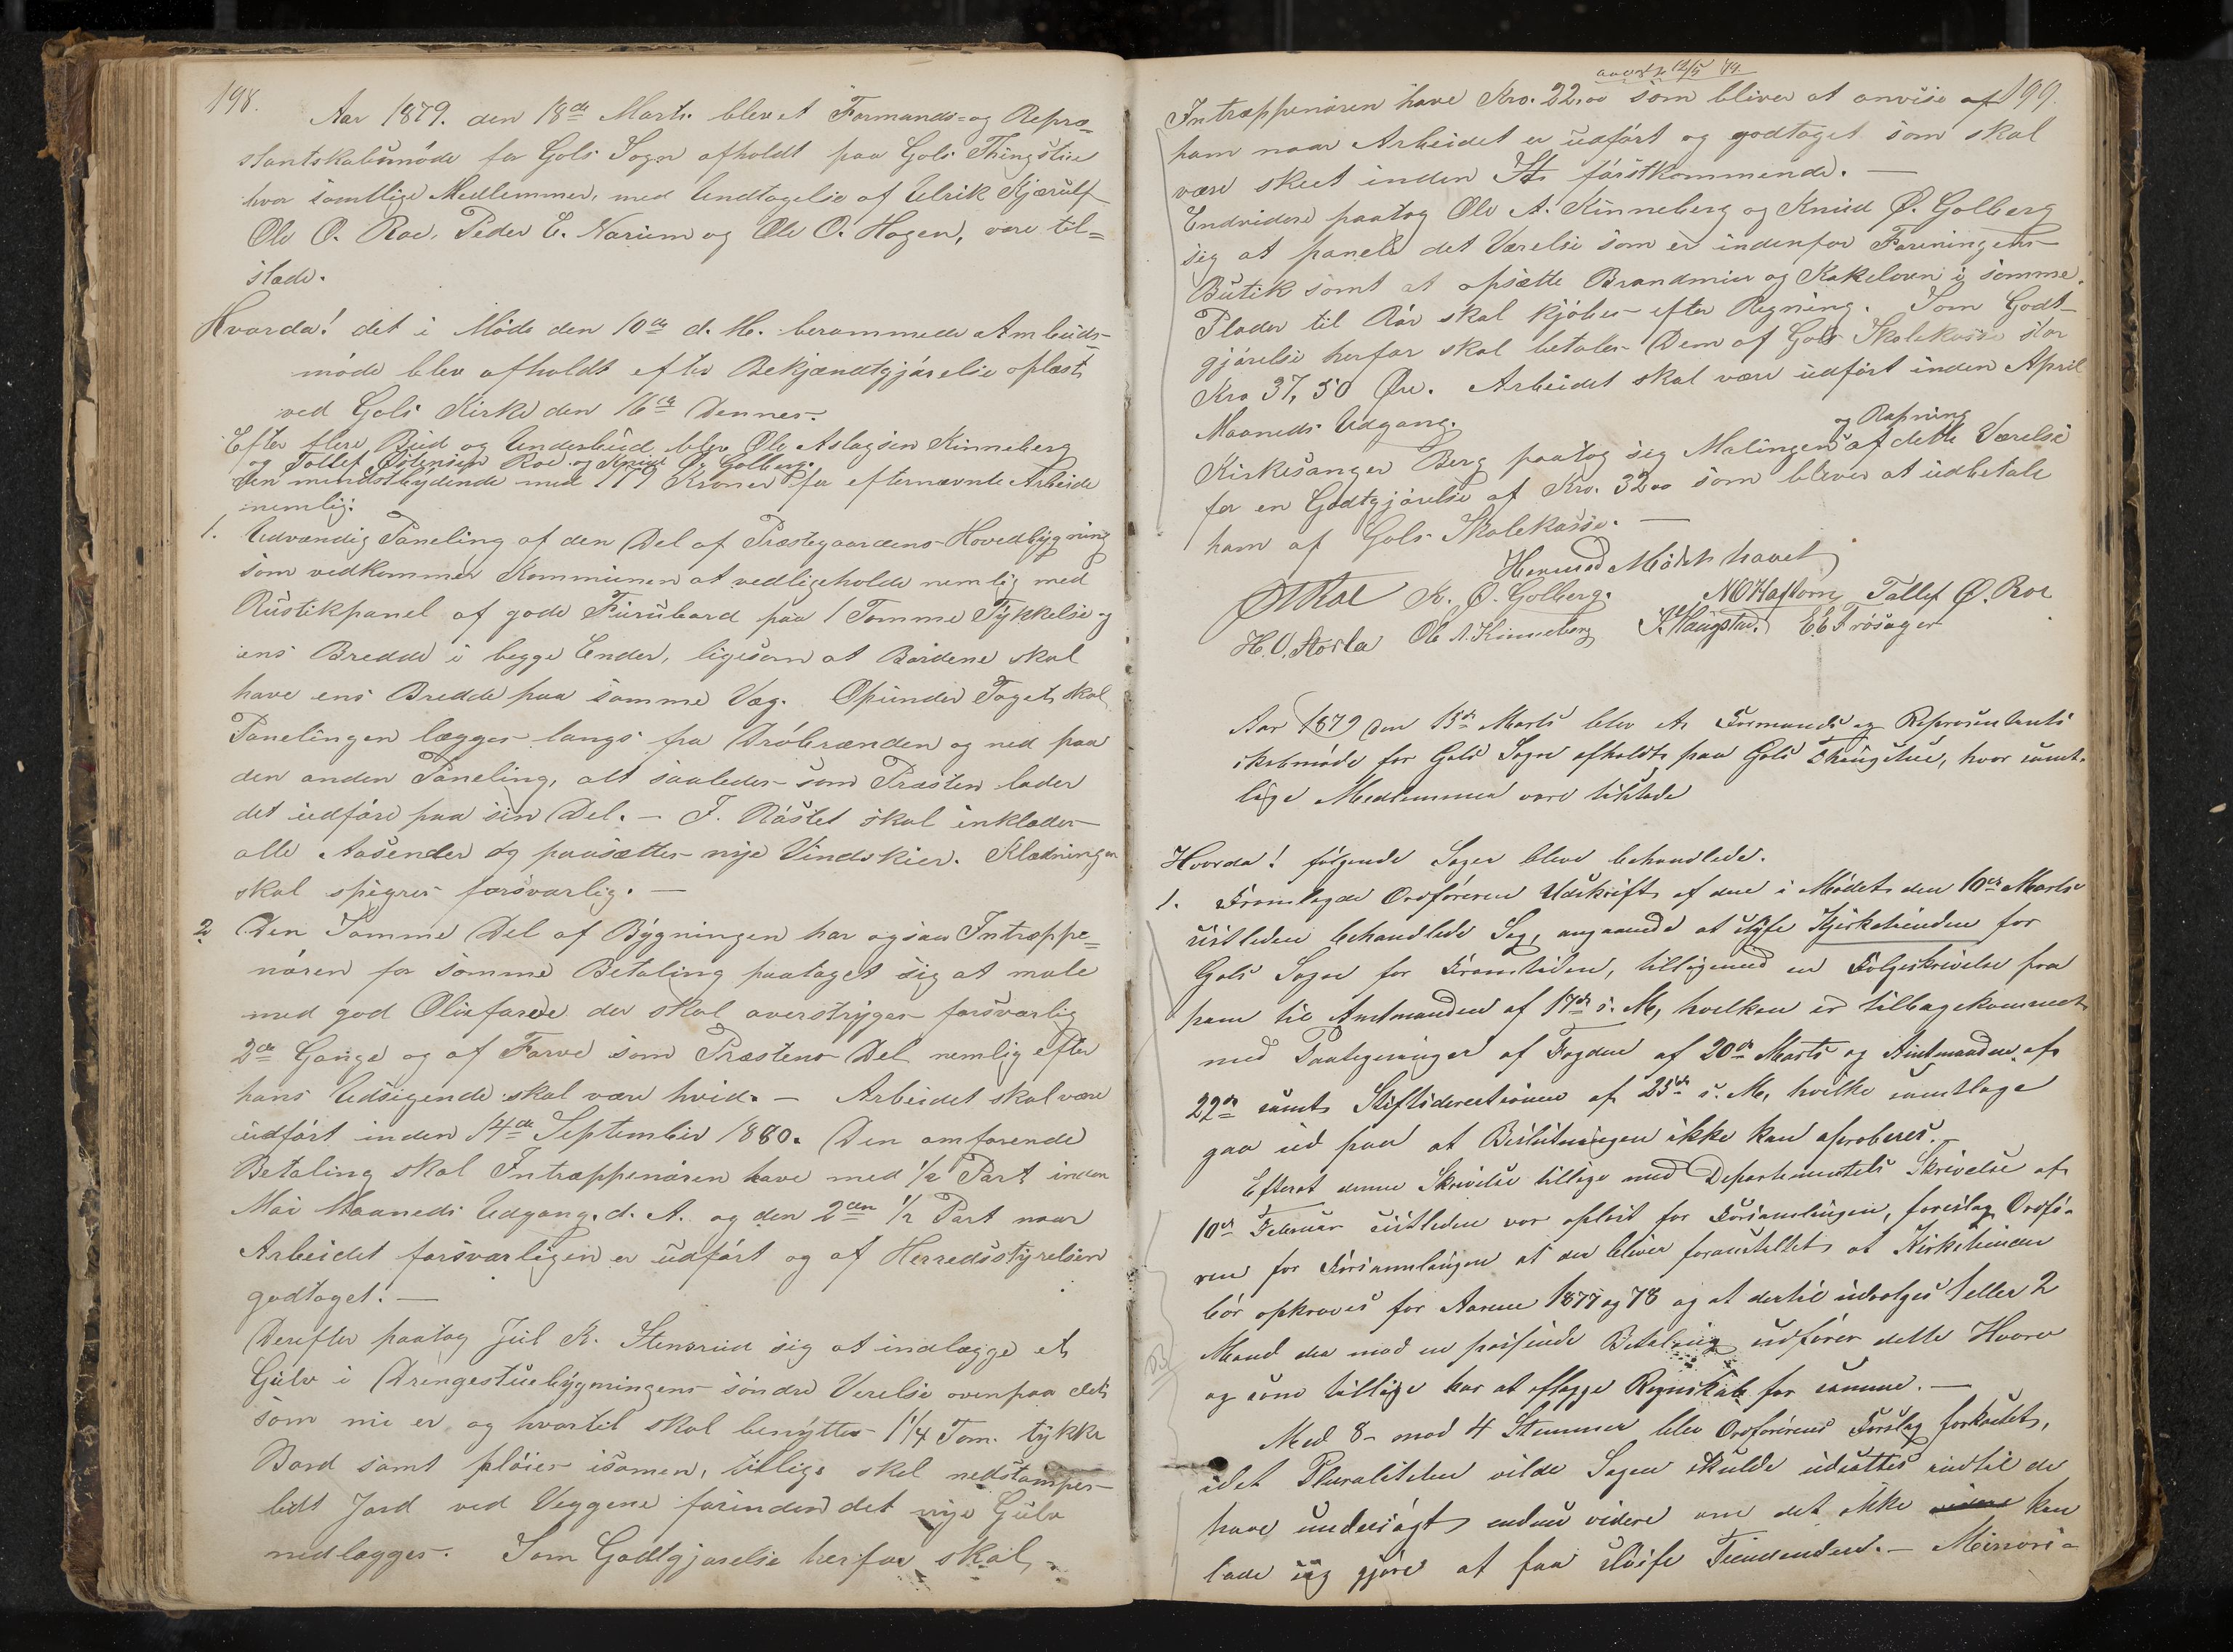 198.
Aar 1879. den 18de Marts blev et Formands- og Repræ-
stantskabsmöde for Gols Sogn afholdt paa Gols Thingstue
hvor samtlige Medlemmer, med Undtagelse af Ulrik Kjærulf
Ole O. Roe, Peder E. Narum og Ole O. Hagen, vare til-
stede.
Hvorda! det i Möde den 10de d. M. berammede Ambuds-
möde blev afholdt efter Bekjændtgjörelse oplæst
ved Gols Kirke den 16de Dennes.
Efter flere Bud og Underbud blev Ole Aslagsen Kinneberg
og Tollef Östensen Roe og Knud Ø. Golberg
den mindstbydende med 179 Kroner for efternævnte Arbeide
nemlig:
1. Udvændig Paneling af den Del af Præstegaardens Hovedbygning
som vedkommer Kommunen at vedligeholde nemlig med
Rustikpanel af gode Furubord paa 1 Tomme Tykkelse og
ens Bredde i begge Ender, ligesom at Bordene skal
have ens Bredde paa samme Væg. Opunder Taget skal
Panelingen lægges langs fra Dröbrænden og ned paa
den anden Paneling, alt saaledes som Præsten lader
det udföre paa sin Del. – F. Röstet skal inklædes
alle Aasender og paasættes nye Vindskier. Klædningen
skal spigres forsvarlig. —
2 Den Samme Del af Bygningen har ogsaa Entræppe-
nören for samme Betaling paataget sig at male
med god Oliefarve der skal overstryges forsvarlig
2de Gange og af Farve som Præstens Del nemlig efter
hans Udsigende skal være hvid. — Arbeidet skal være
udfört inden 14de September 1880. Den omforende
Betaling skal Entræppenören have med 1/2 Part inden
Mai Maaneds Udgang d. A. og den 2den 1/2 Part naar
Arbeidet forsvarligen er udfört og af Herredsstyrelsen
godtaget. —
Derefter paatog Jul K. Stensrud sig at indlægge et
Gulv i Drengestuebygningens söndre Værelse ovenpaa det
som nu er og hvortil skal benyttes 1 1/4 Tom. tykke
Bord samt plöies isamen, tillige skal nedstampes
lidt Jord ved Væggene forinden det nye Gulv
nedlægges. Som Godtgjörelse herfor skal
anvist 12/5 79.
199.
Entræppenören have Kro. 22.00 som bliver at anvise af
ham naar Arbeidet er udfört og godtaget som skal
være skeet inden St. förstkommende. —
Endvidere paatog Ole A. Kinneberg og Knud Ø. Golberg
sig at panele det Værelse som er indenfor Foreningens
Butik samt at opsætte Brandmur og Kakelovn i samme.
Plader til Rör skal kjöbes efter Regning. Som Godt-
gjörelse herfor skal betales Dem af Gols Skolekasse stor
Kro 37,50 Øre. Arbeidet skal være udfört inden April
Maaneds Udgang.
og Rapning
Kirkesanger Berg paatog sig Malingen af dette Værelse
for en Godtgjörelse af Kro. 32.00 som bliver at udbetale
ham af Gols Skolekasse. —
Hermod
O Roe K. Ø. Golberg. N O Haftorn Tollef Ø. Roe
H. O. Storla Ole A. Kinneberg P. Haugstad. E E Frösager
Aar 1879 den Marts blev et Formands og Repræsentants
skabmöde for Gols Sogn afholdt paa Gols Thingstue, hvor samt-
lige Medlemmer vare tilstede
Hvorda! fölgende Sager bleve behandlede.
1. Fremlagde Ordföreren Udskrift af den i Mödet den 10de Marts
sistleden behandlede Sag, angaaende at slöife Kjirketienden for
Gols Sogn for Fremtiden, tilligemed en Fölgeskrivelse fra
ham til Amtmanden af 17de s. M, hvilken er tilbagekommet
med Paategninger af Fogden af 20de Marts og Amtmanden af
22de samt Stiftsderectionen af 25de s. M, hvilke samtlige
gaa ud paa at Beslutningen ikke kan aproberes. —
Efterat denne Skrivelse tillige med Departementets Skrivelse af
10de Februar sistleden var oplæst for Forsamlingen, foreslog Ordfö-
ren for Forsamlingen at der bliver foranstaltet at Kirketienden
bör opkræves for Aarene 1877 og 78 og at dertil udvælges 1 eller 2
Mand der mod en passende Betaling udförer dette Hverv
og som tillige har at aflægge Regnskab for samme. —
Med 8 – mod 4 Stemmer blev Ordförerens Forslag forkastet,
idet Pluraliteten vilde Sagen skulde udsættes indtil de
have undersögt endnu videre om det ikke kan
lade sig gjöre at faa slöife Tiendenden. — Minori-